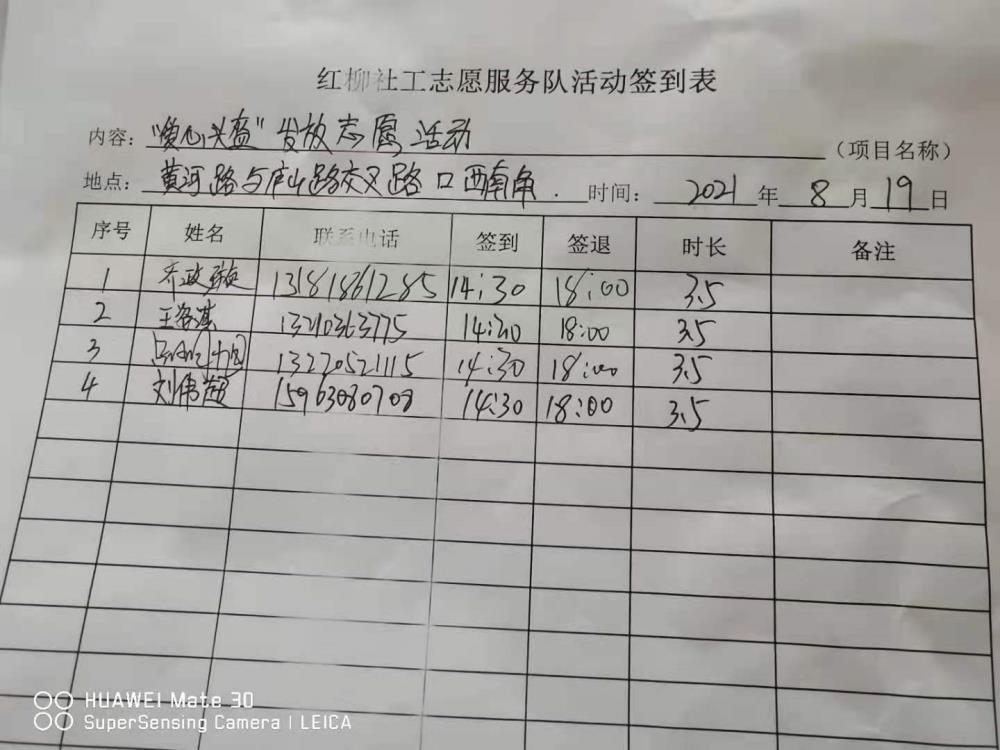 红柳社工志愿服务队活动签到表
内容：“爱心头盔”发放志愿活动（项目名称）
地点：黄河路与庐山路交叉路口西南角. 时间：2021年8月19日
序号 姓名 联系电话 签到 签退 时长 备注
1 齐政 13181861285 14:30 18:00 3.5
2 王洛淇 13210363775 14:30 18:00 3.5
3 13220521115 14:30 18:00 3.5
4 刘伟超 15963080708 14:30 18:00 3.5
HUAWEI Mate 30
SuperSensing Camera | LEICA